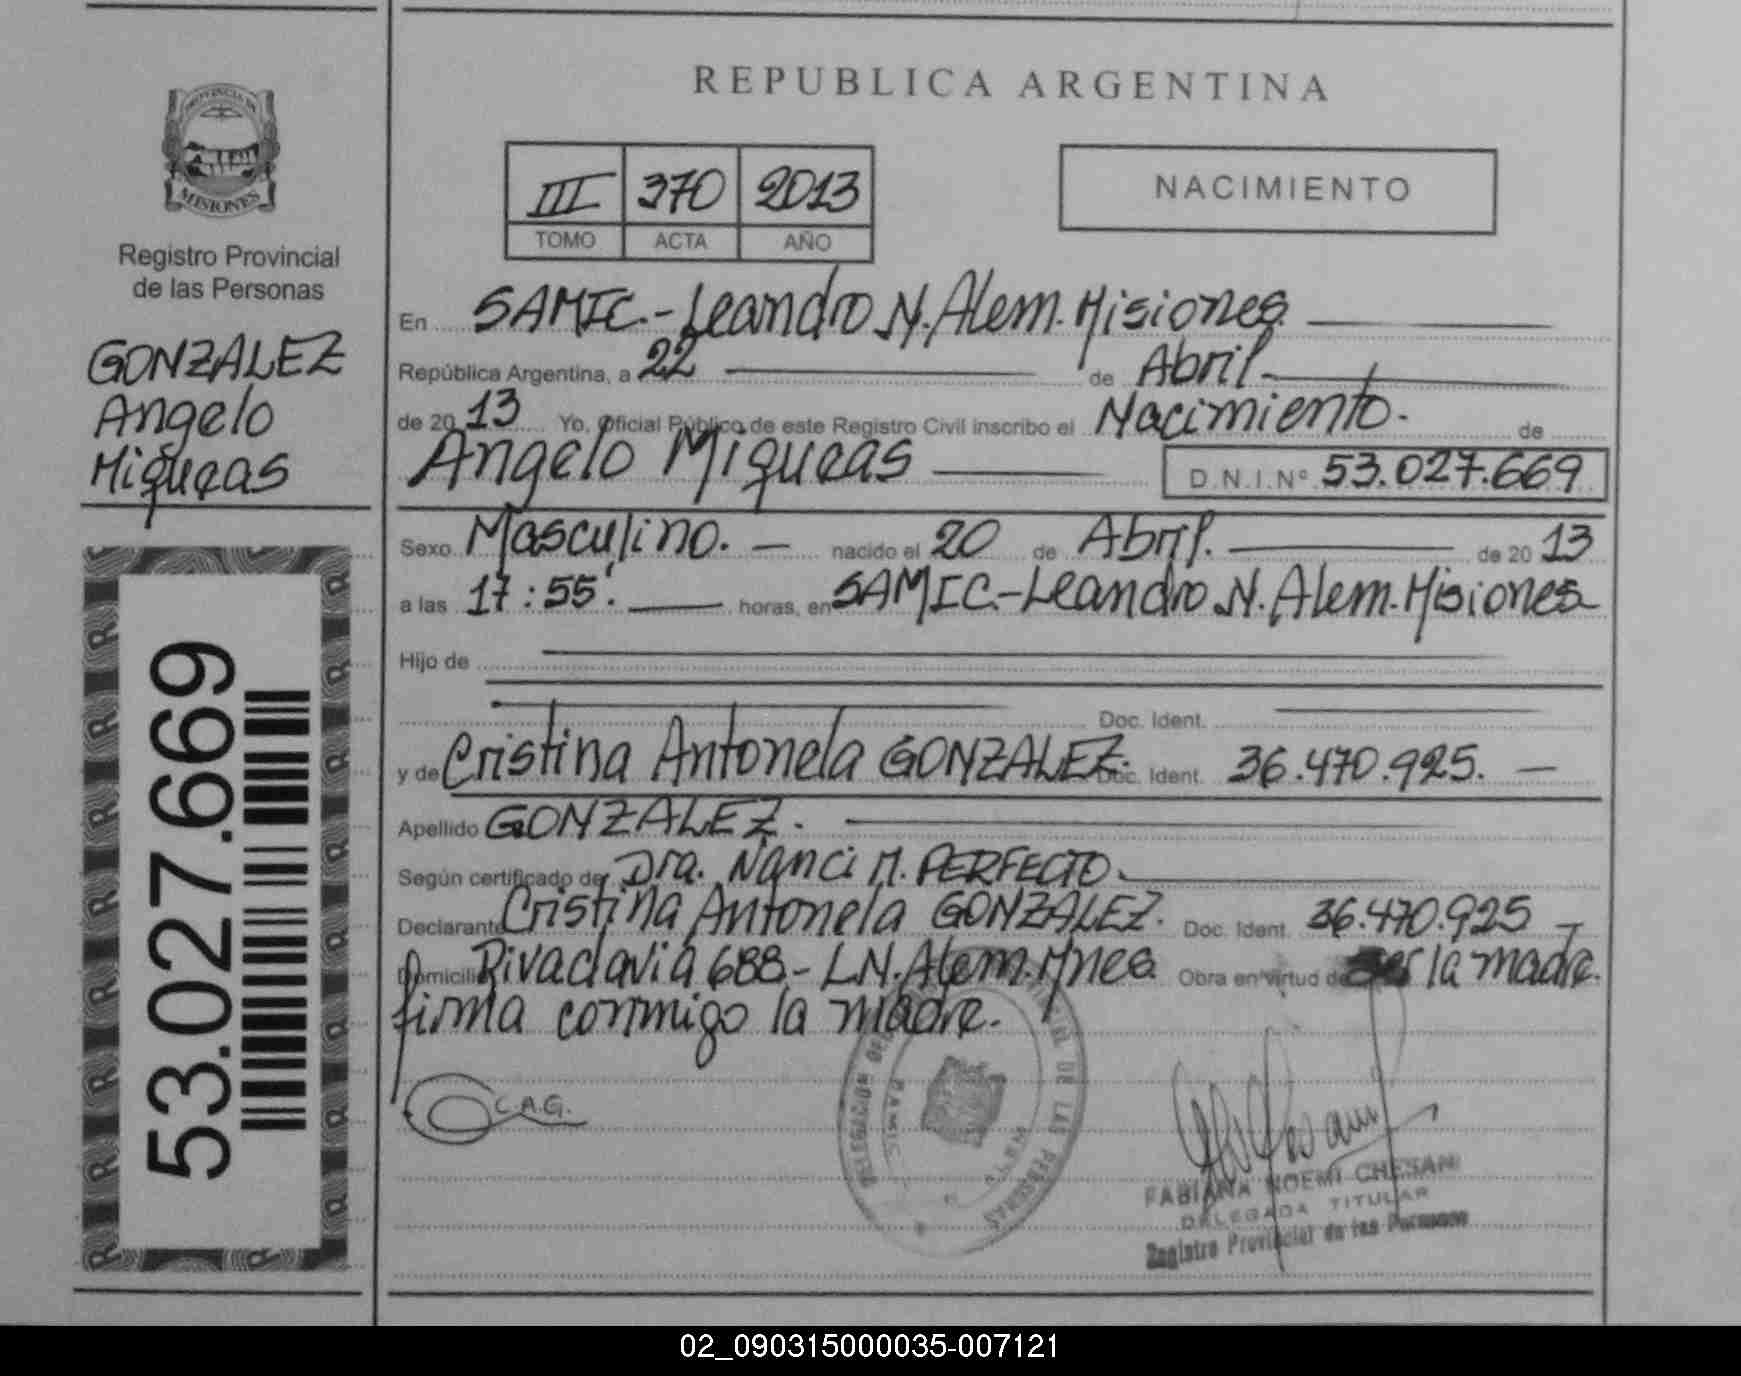 REPUBLICA ARGENTINA
PROVINCIA DE
MISIONES
Registro Provincial
de las Personas
GONZALEZ
Angelo
Miqueas
53.027.669
III 370 2013
TOMO ACTA AÑO
NACIMIENTO
En SAMIC.-Leandro N. Alem. Misiones
República Argentina, a 22 de Abril
de 2013 Yo, Oficial Público de este Registro Civil inscribo el Nacimiento. de
Angelo Miqueas D.N.I.Nº 53.027.669
Sexo Masculino. nacido el 20 de Abril. de 2013
a las 17:55'. horas, en SAMIC.-Leandro N. Alem. Misiones
Hijo de
Doc. Ident.
y de Cristina Antonela GONZALEZ. Doc. Ident. 36.470.925.
Apellido GONZALEZ.
Según certificado de Dra. Nanci M. PERFECTO.
Declarante Cristina Antonela GONZALEZ. Doc. Ident. 36.470.925
Domicilio Rivadavia 688.- L.N. Alem. Mnes. Obra en virtud de ser la madre.
firma conmigo la madre.
C.A.G.
DELEGACION
DE LAS PERSONAS
SAMIC
FABIANA NOEMI CHESANI
DELEGADA TITULAR
Registro Provincial de las Personas
02_090315000035-007121